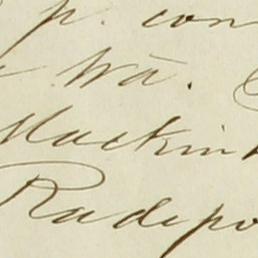 p. con
Wā.
Mackin
Radepo